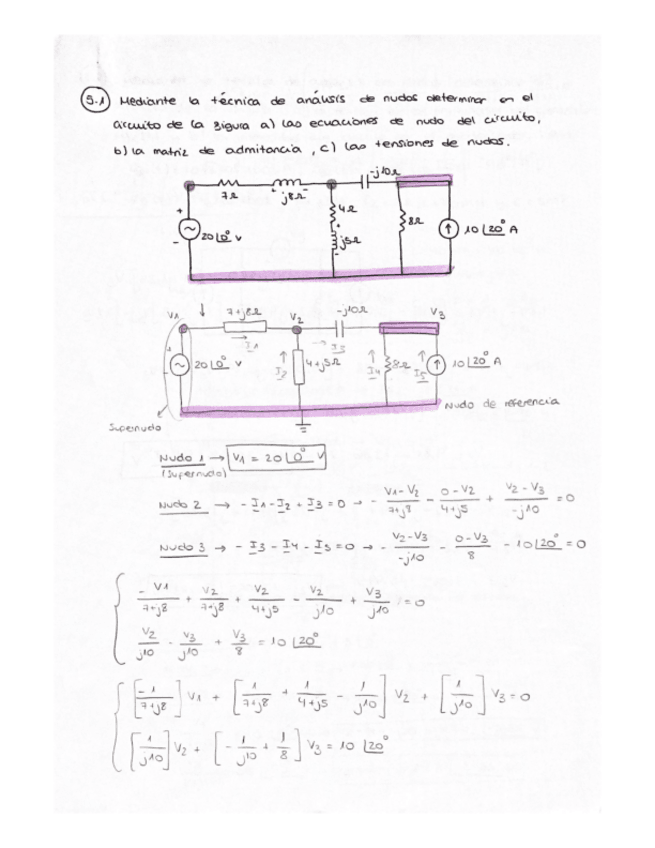 9.1) Mediante la técnica de análisis de nudos determinar en el
circuito de la figura a) las ecuaciones de nudo del circuito,
b) la matriz de admitancia, c) las tensiones de nudos.
7Ω j8Ω -j10Ω
+ - 20∠0° V
4Ω + j5Ω -
8Ω
10∠20° A
V1 ↓ 7+j8Ω V2 -j10Ω V3
→ I1 → I3
+ 20∠0° V ↑ I2 4+j5Ω ↑ I4 8Ω ↑ I5 10∠20° A
Nudo de referencia
Supernudo
Nudo 1 → V1 = 20∠0° V
(Supernudo)
Nudo 2 → -I1 - I2 + I3 = 0 → - (V1-V2)/(7+j8) - (0-V2)/(4+j5) + (V2-V3)/(-j10) = 0
Nudo 3 → -I3 - I4 - I5 = 0 → - (V2-V3)/(-j10) - (0-V3)/8 - 10∠20° = 0
{ -V1/(7+j8) + V2/(7+j8) + V2/(4+j5) - V2/j10 + V3/j10 = 0
V2/j10 - V3/j10 + V3/8 = 10∠20°
{ [-1/(7+j8)] V1 + [1/(7+j8) + 1/(4+j5) - 1/j10] V2 + [1/j10] V3 = 0
[1/j10] V2 + [-1/j10 + 1/8] V3 = 10∠20°